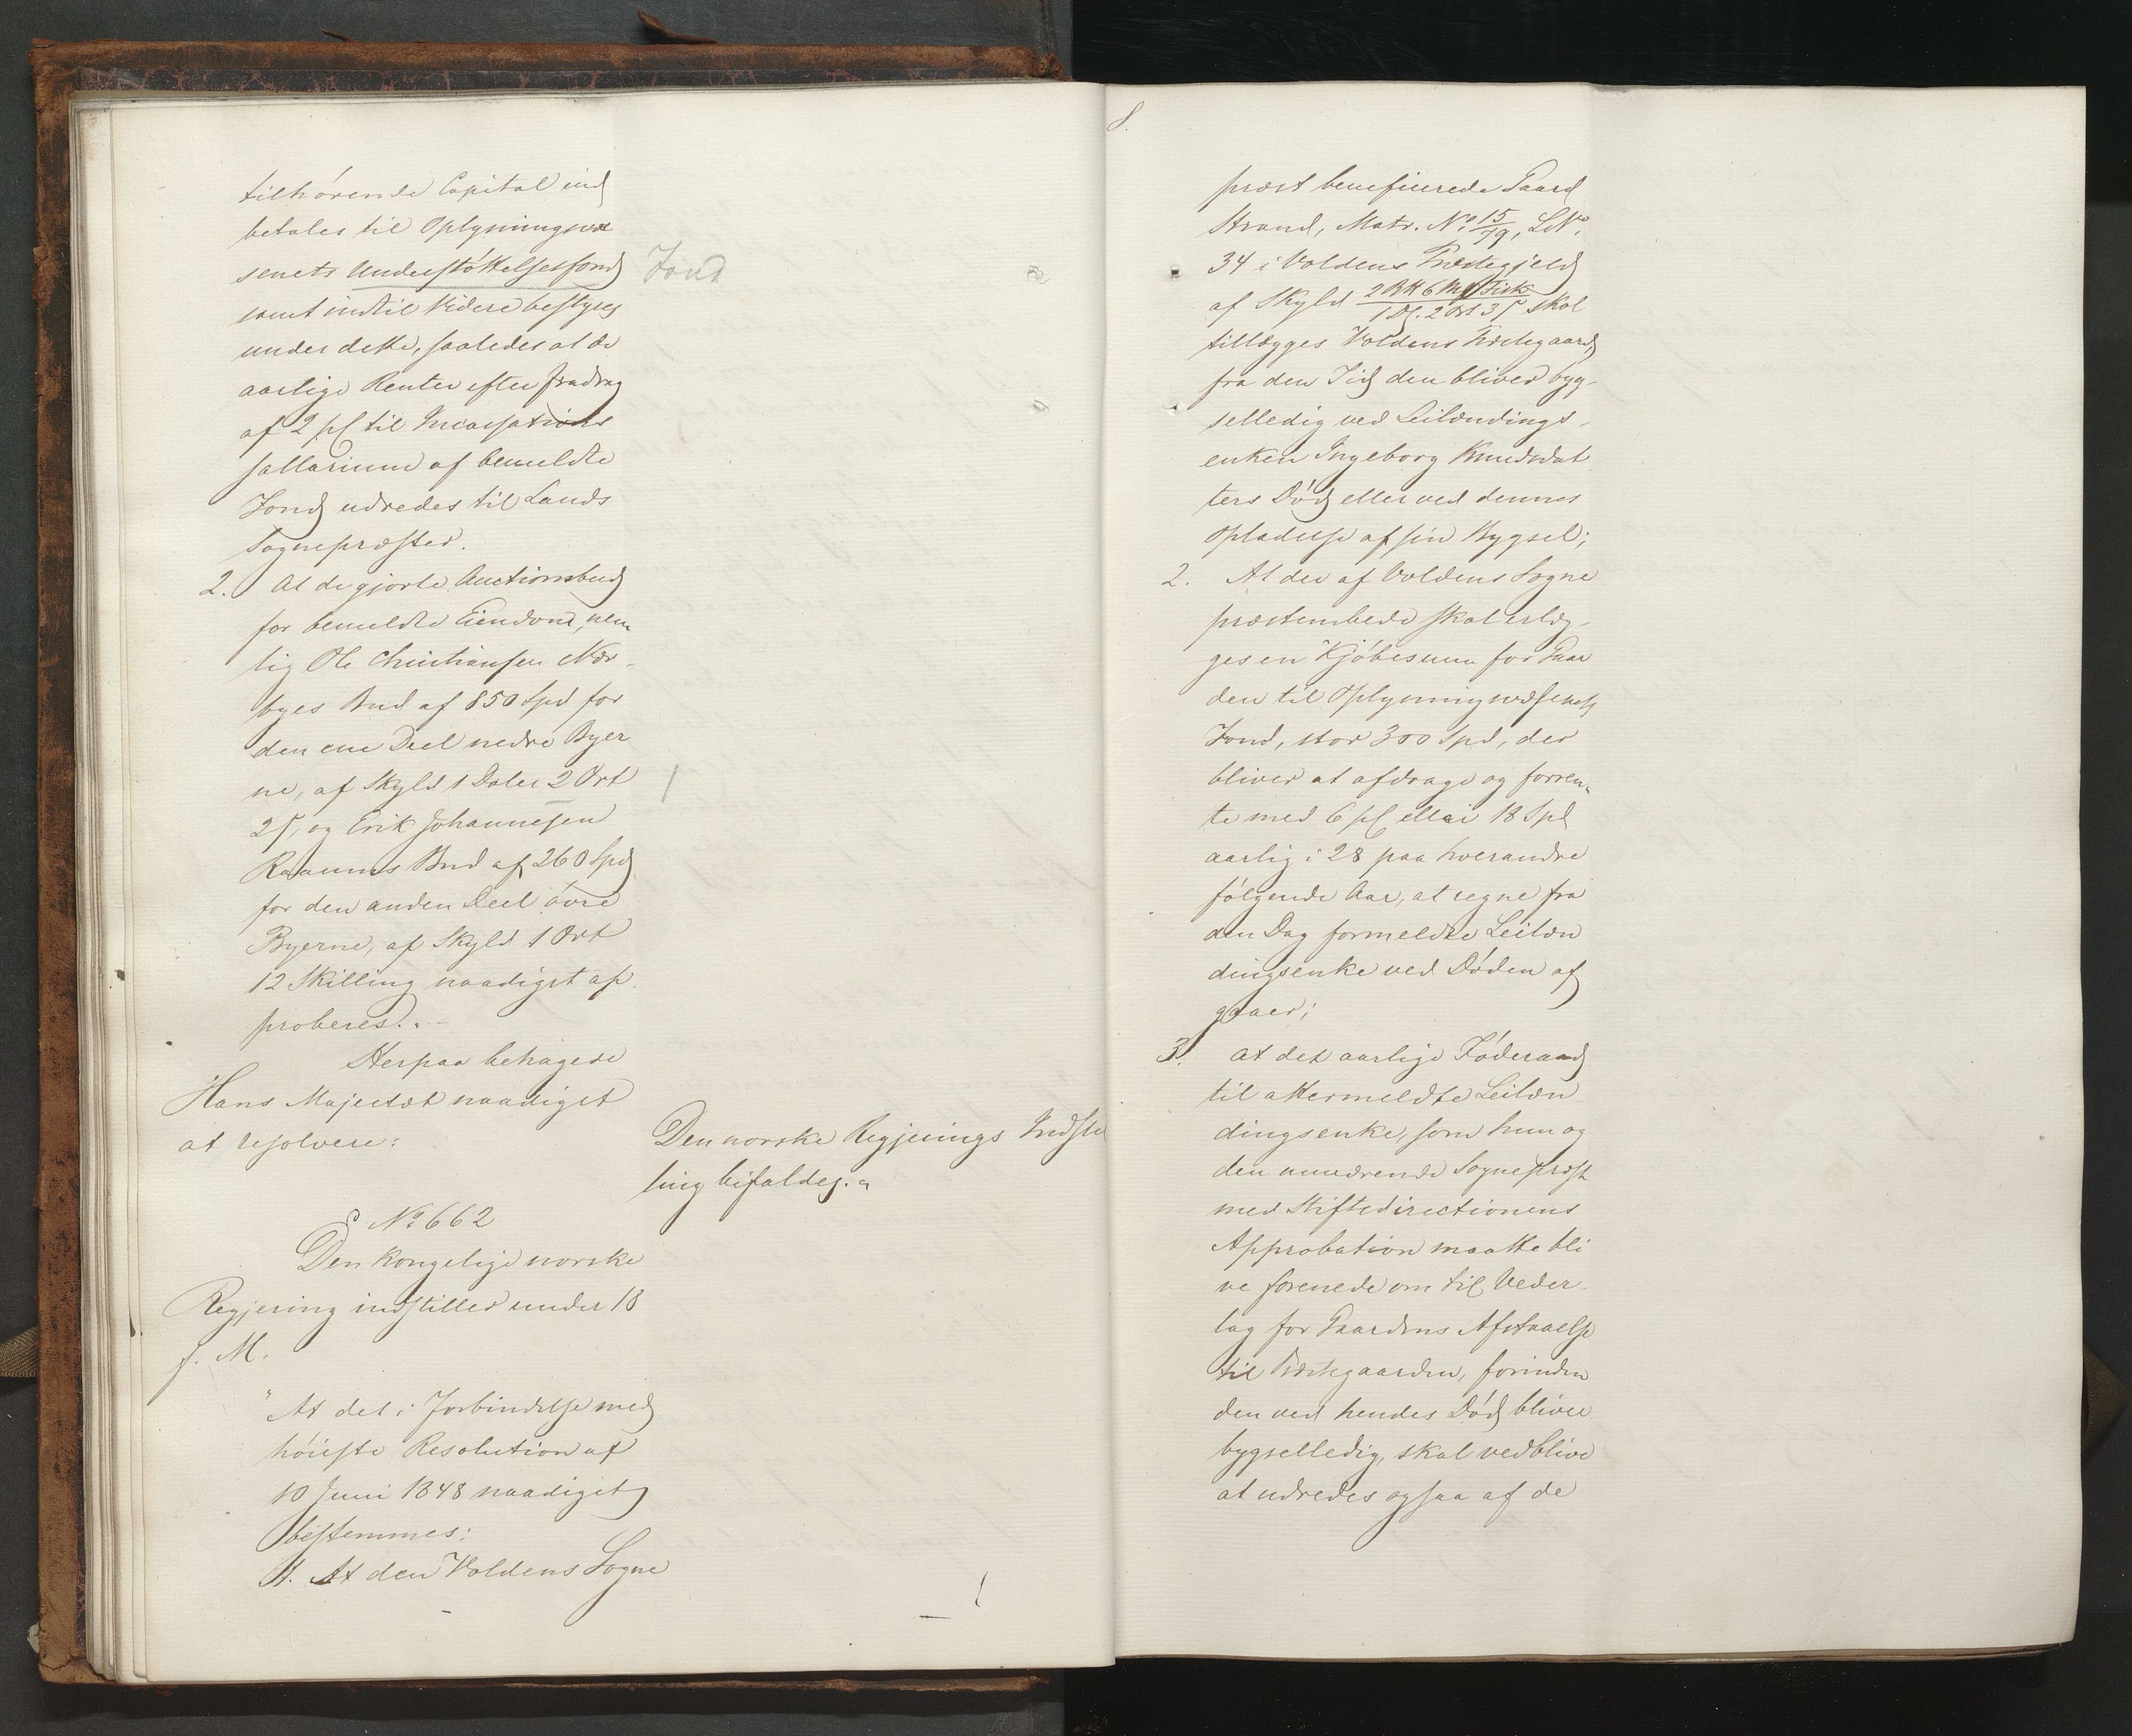 tilhørende Capital ind
betales til Oplysningsvæ
senets Understøttelsesfond
Fond
samt indtil Videre bestyres
under dette, saaledes at de
aarlige Renter efter Fradrag
af 2 pCt til Incassations
sallarium af bemeldte
Fond udredes til Lands
Sognepræster.
2. At de gjorte Auctionsbud
for bemeldte Eiendom, nem
lig Ole Christiansen Nær-
byes Bud af 850 Spd for
den ene Deel nedre Byer
ne, af Skyld 1 Daler 2 Ort
2 s, og Erik Johannesen
Raaums Bud af 260 Spd
for den anden Deel øvre
Byerne, af Skyld 1 Ort
12 Skilling naadigst ap
proberes."
Herpaa behagede
Hans Majestæt naadigst
at resolvere:
Den norske Regjerings Indstil
ling bifaldes."
No 662
Den kongelige norske
Regjering indstiller under 18
f. M.
"At det i Forbindelse med
høieste Resolution af
10 Juni 1848 naadigst
bestemmes:
1. At den Voldens Sogne
8.
præst beneficerede Gaard
Strand, Matr. No 15/79, LNo
34 i Voldens Præstegjeld
af Skyld 2 Fisk / 1 D. 2 Ort 3 s skal
tillægges Voldens Præstegaard,
fra den Tid den bliver byg-
selledig ved Leilændings-
enken Ingeborg Knudsdat
ters Død eller ved dennes
Opladelse af sin Bygsel;
2. At der af Voldens Sogne
præstembede skal erlæg-
ges en Kjøbesum for Gaar
den til Oplysningsvæsenets
Fond, stor 300 Spd, der
bliver at afdrage og forren-
te med 6 pCt eller 18 Spd
aarlig i 28 paa hverandre
følgende Aar, at regne fra
den Dag formeldte Leilæn
dingsenke ved Døden af
gaaer;
3. at det aarlige Føderaad
til attermeldte Leilæn
dingsenke, som hun og
den nuværende Sognepræst
med Stiftsdirectionens
Approbation maatte bli
ve forenede om til Veder-
lag for Gaardens Afstaaelse
til Præstegaarden, forinden
den ved hendes Død bliver
bygselledig, skal vedblive
at udredes ogsaa af de